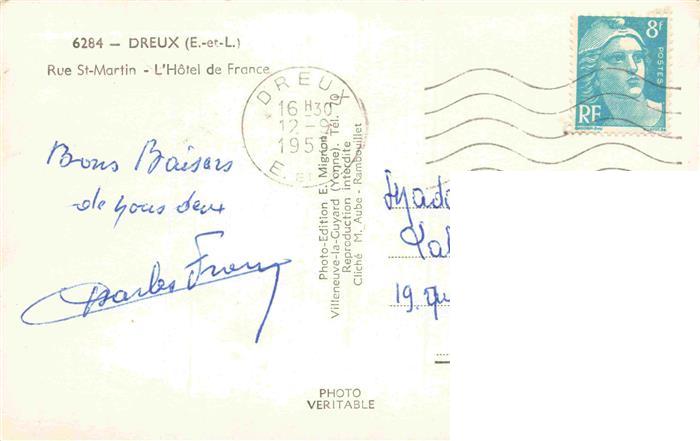 6284 — DREUX (E.-et-L.)
Rue St-Martin - L'Hôtel de France
DREUX
16 H30
12 -
195
E. ET
8F
POSTES
RF
Bons Baisers
de nous deux
Charles
Photo-Edition E. Mignon
Villeneuve-la-Guyard (Yonne). Tél. 9
Reproduction interdite
Cliché M. Aube - Rambouillet
19.
PHOTO
VERITABLE